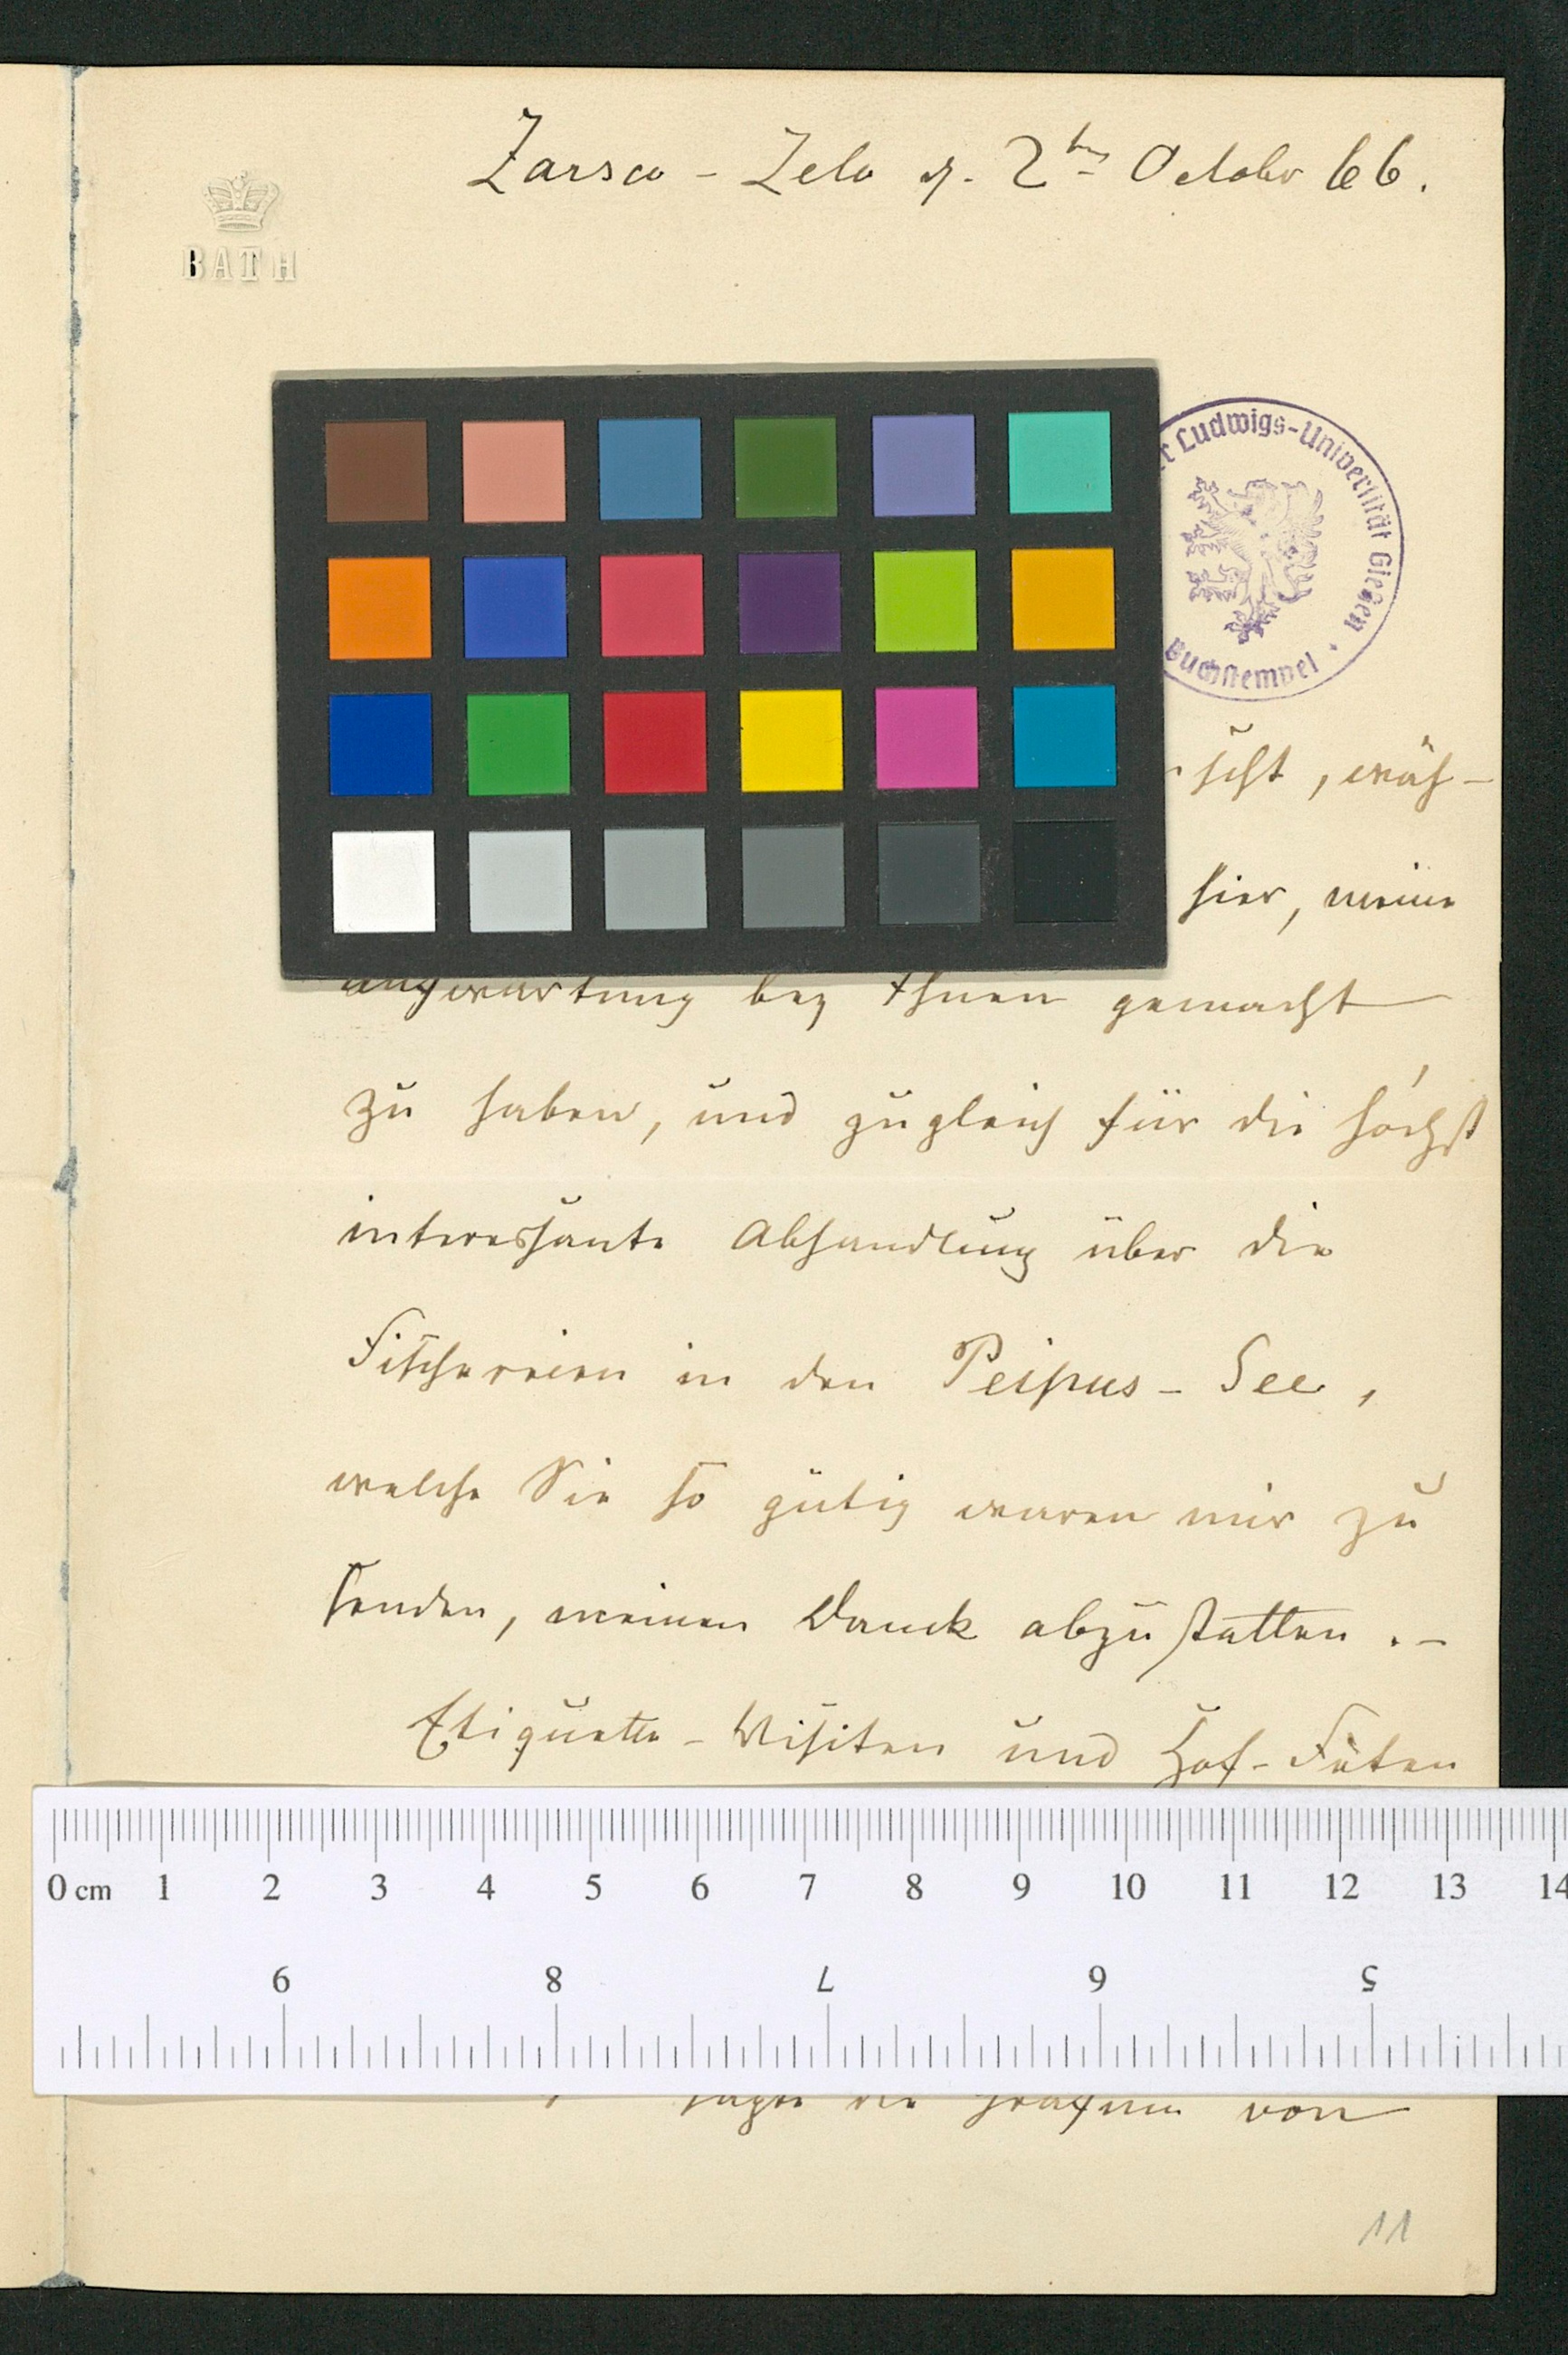 Zarsco - Zelo d. 2ten October 66.
BATH
Ludwigs-Universität Gießen
Buchstempel
, wäh-
hier, meine
Aufwartung bey Ihnen gemacht
zu haben, und zugleich für die höchst
interessante Abhandlung über die
Fischereien in den Peipus-See,
welche Sie so gütig waren mir zu
senden, meinen Danck abzustatten. -
Etiquette-Visiten und Hof-Fêten
0 cm 1 2 3 4 5 6 7 8 9 10 11 12 13 14
9 8 7 6 5
sagte die von
11